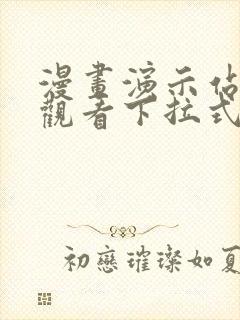 漫畫演示佔
觀看下拉式
初戀璀璨如夏